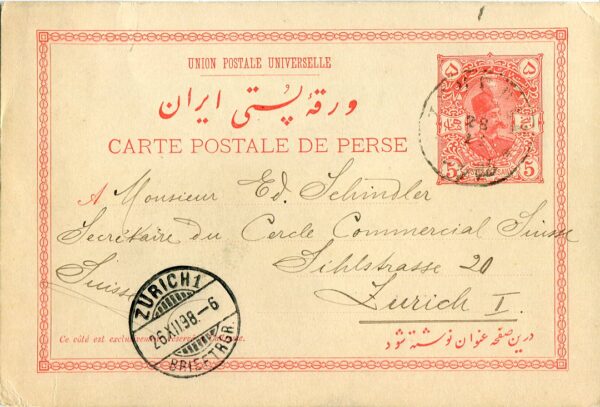 UNION POSTALE UNIVERSELLE
ورقهٔ پُستی ایران
CARTE POSTALE DE PERSE
۵ ۵
5 5
28
A Monsieur Ed. Schindler
Secrétaire du Cercle Commercial Suisse
Sihlstrasse 20
Suisse
Zurich I.
ZÜRICH 1
26.XII.98.-6
BRIEFTRGR.
Ce côté est exclusivement réservé à l'adresse
درین صفحه عنوان نوشته شود